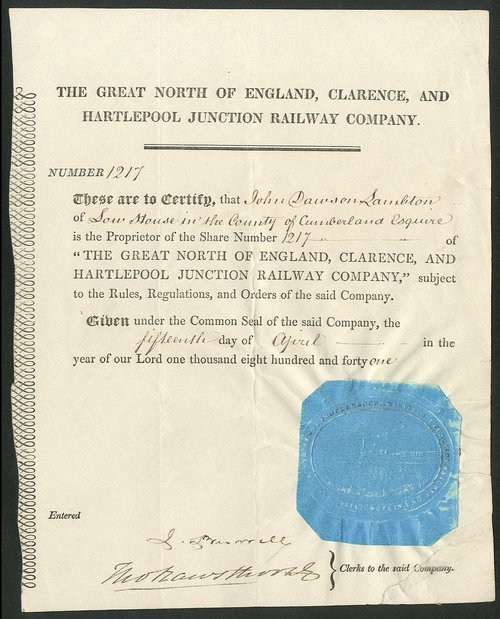 THE GREAT NORTH OF ENGLAND, CLARENCE, AND
HARTLEPOOL JUNCTION RAILWAY COMPANY.
NUMBER 1217
These are to Certify, that John Dawson Lambton
of Low House in the County of Cumberland Esquire
is the Proprietor of the Share Number 1217 of
"THE GREAT NORTH OF ENGLAND, CLARENCE, AND
HARTLEPOOL JUNCTION RAILWAY COMPANY," subject
to the Rules, Regulations, and Orders of the said Company.
Given under the Common Seal of the said Company, the
fifteenth day of April in the
year of our Lord one thousand eight hundred and forty one
Entered
Clerks to the said Company.